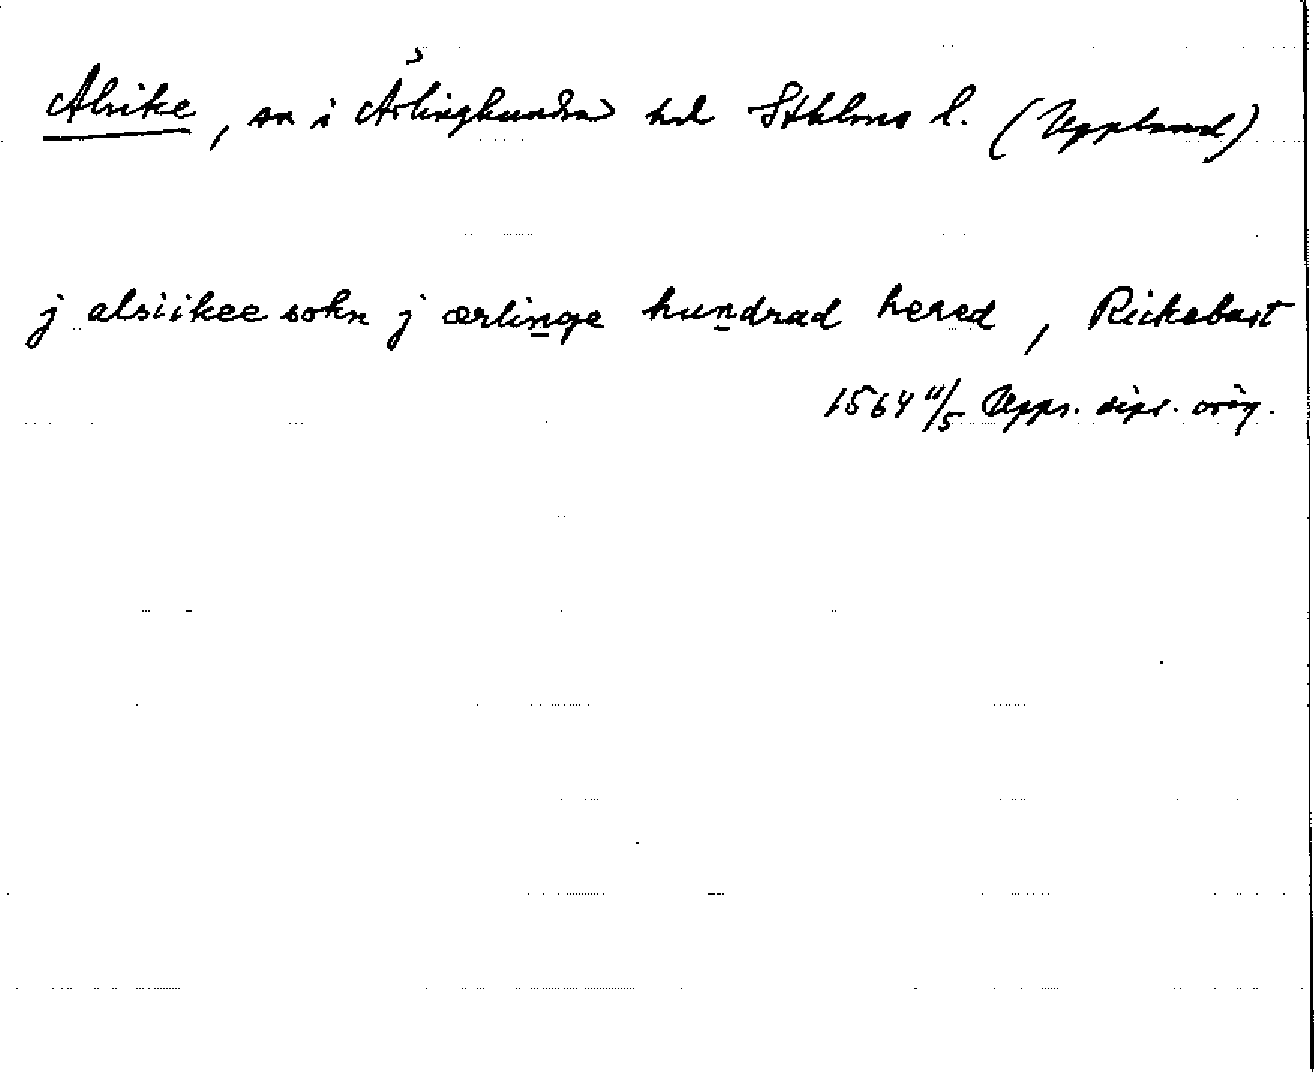 Alsike, sn i Ärlinghundra hd Sthlms l. (Uppland)
j alsiikee sokn j ærlinge hundrad hered, Rickebast
1564 11/5 Upps. dipl. orig.